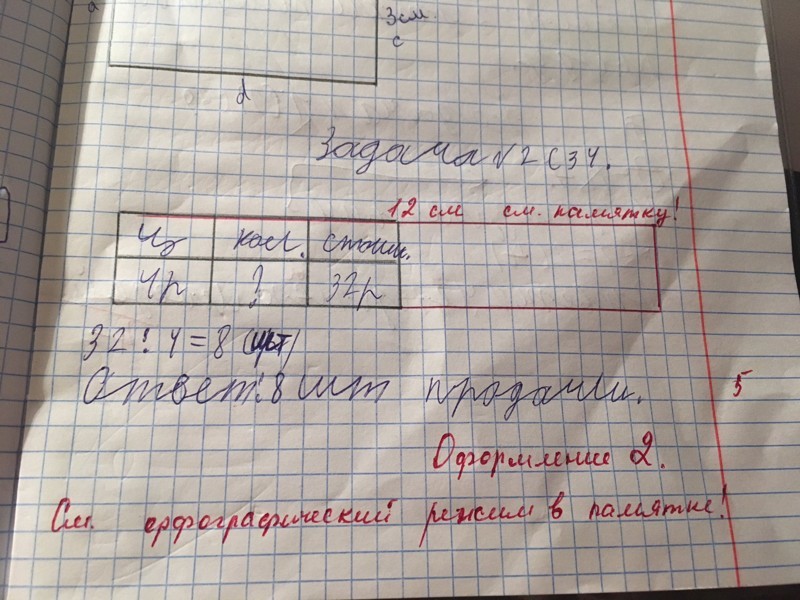 а
3см
с
d
Задача №2 С 34.
12 см см. памятку!
Ц кол. стоим.
4р ? 32р
32 : 4 = 8 (шт)
Ответ: 8 шт продали.
5
Оформление 2.
См. орфографический режим в памятке!